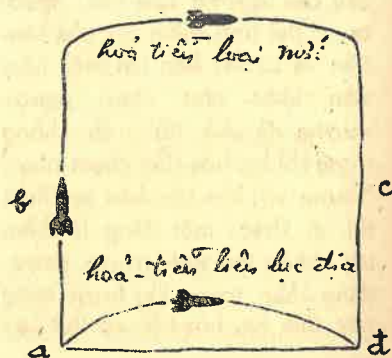 hoả tiễn loại mới
b
c
hoả-tiễn liên lục địa
a
d